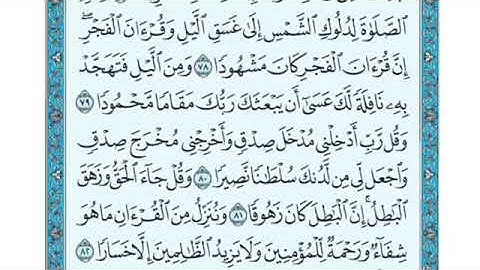 ٱلصَّلَوٰةَ لِدُلُوكِ ٱلشَّمْسِ إِلَىٰ غَسَقِ ٱلَّيْلِ وَقُرْءَانَ ٱلْفَجْرِۖ
إِنَّ قُرْءَانَ ٱلْفَجْرِ كَانَ مَشْهُودًا ٧٨ وَمِنَ ٱلَّيْلِ فَتَهَجَّدْ
بِهِۦ نَافِلَةً لَّكَ عَسَىٰٓ أَن يَبْعَثَكَ رَبُّكَ مَقَامًا مَّحْمُودًا ٧٩
وَقُل رَّبِّ أَدْخِلْنِى مُدْخَلَ صِدْقٍ وَأَخْرِجْنِى مُخْرَجَ صِدْقٍ
وَٱجْعَل لِّى مِن لَّدُنكَ سُلْطَٰنًا نَّصِيرًا ٨٠ وَقُلْ جَآءَ ٱلْحَقُّ وَزَهَقَ
ٱلْبَٰطِلُۚ إِنَّ ٱلْبَٰطِلَ كَانَ زَهُوقًا ٨١ وَنُنَزِّلُ مِنَ ٱلْقُرْءَانِ مَا هُوَ
شِفَآءٌ وَرَحْمَةٌ لِّلْمُؤْمِنِينَ وَلَا يَزِيدُ ٱلظَّٰلِمِينَ إِلَّا خَسَارًا ٨٢